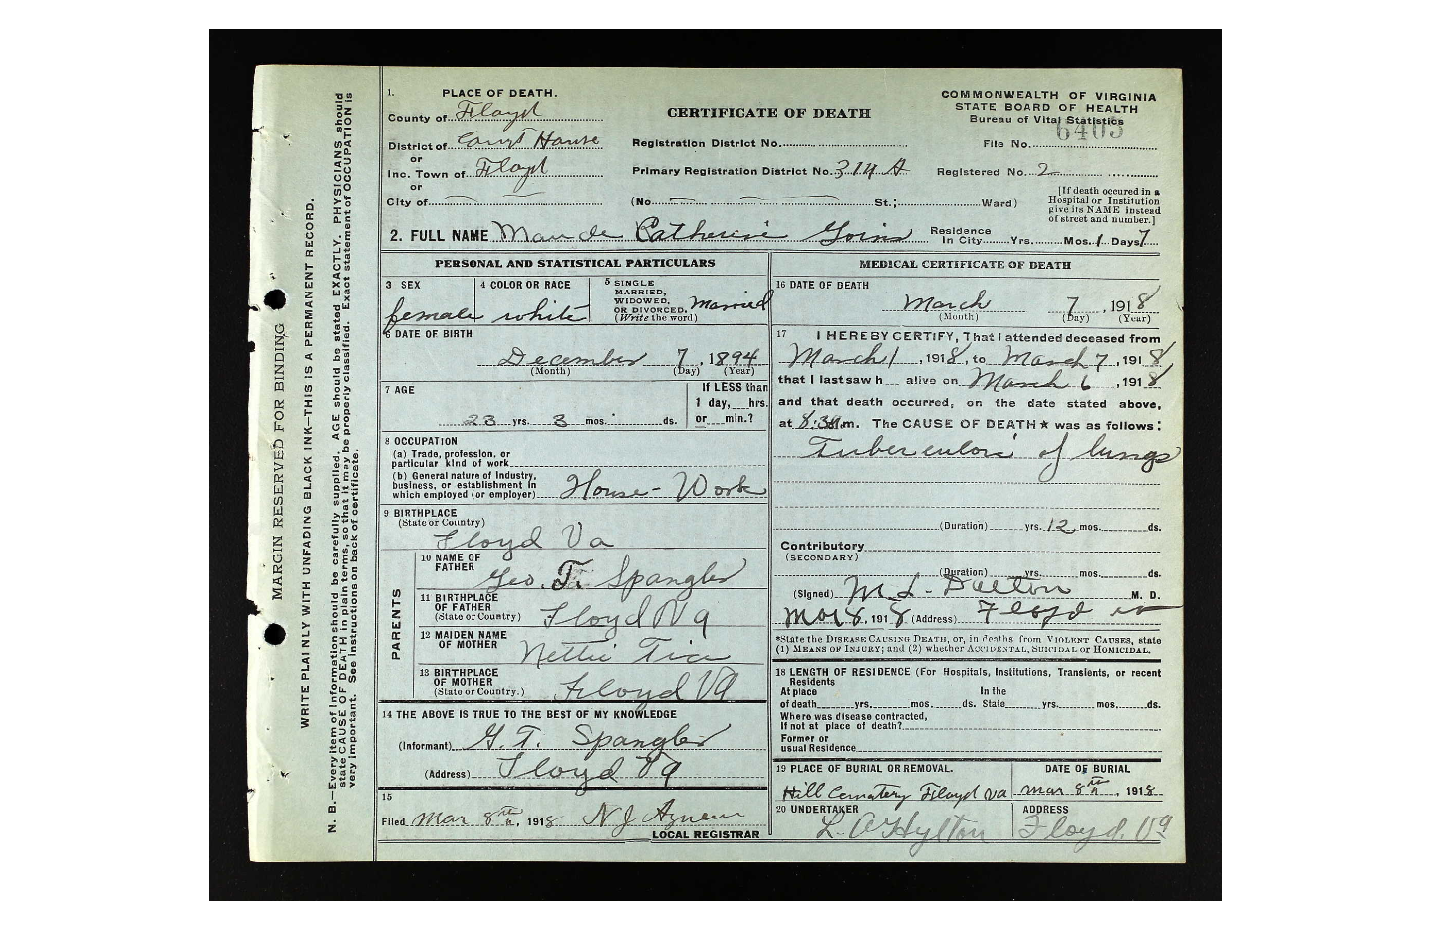 1. PLACE OF DEATH.
County of Floyd
District of Court House
or
Inc. Town of Floyd
or
City of
CERTIFICATE OF DEATH
Registration District No.
Primary Registration District No. 314 A
(No. St.; Ward)
COMMONWEALTH OF VIRGINIA
STATE BOARD OF HEALTH
Bureau of Vital Statistics
6405
File No.
Registered No. 2
[If death occured in a
Hospital or Institution
give its NAME instead
of street and number.]
2. FULL NAME Maude Catherine Goins
Residence
In City Yrs. Mos. 1 Days 7
PERSONAL AND STATISTICAL PARTICULARS
3 SEX
female
4 COLOR OR RACE
white
5 SINGLE
MARRIED,
WIDOWED,
OR DIVORCED. Married
(Write the word)
6 DATE OF BIRTH
December 7, 1894
(Month) (Day) (Year)
7 AGE
23 yrs. 3 mos. ds.
If LESS than
1 day, hrs.
or min.?
8 OCCUPATION
(a) Trade, profession, or
particular kind of work
(b) General nature of industry,
business, or establishment in
which employed (or employer) House-Work
9 BIRTHPLACE
(State or Country)
Floyd Va
PARENTS
10 NAME OF
FATHER Geo. T. Spangler
11 BIRTHPLACE
OF FATHER
(State or Country) Floyd Va
12 MAIDEN NAME
OF MOTHER Nettie Tice
13 BIRTHPLACE
OF MOTHER
(State or Country.) Floyd Va
14 THE ABOVE IS TRUE TO THE BEST OF MY KNOWLEDGE
(Informant) G. T. Spangler
(Address) Floyd Va
15
Filed Mar 8th, 1918 N J Agnew
LOCAL REGISTRAR
MEDICAL CERTIFICATE OF DEATH
16 DATE OF DEATH
March 7, 1918
(Month) (Day) (Year)
17 I HEREBY CERTIFY, That I attended deceased from
March 1, 1918, to March 7, 1918
that I last saw h alive on March 6, 1918
and that death occurred, on the date stated above,
at m. The CAUSE OF DEATH★ was as follows:
of lungs
(Duration) yrs. 12 mos. ds.
Contributory
(SECONDARY)
(Duration) yrs. mos. ds.
(Signed) M L. Dalton M. D.
Mar 8, 1918 (Address) Floyd
*State the DISEASE CAUSING DEATH, or, in deaths from VIOLENT CAUSES, state
(1) MEANS OF INJURY; and (2) whether ACCIDENTAL, SUICIDAL or HOMICIDAL.
18 LENGTH OF RESIDENCE (For Hospitals, Institutions, Transients, or recent
Residents
At place In the
of death yrs. mos. ds. State yrs. mos. ds.
Where was disease contracted,
If not at place of death?
Former or
usual Residence
19 PLACE OF BURIAL OR REMOVAL.
Hill Cematery Floyd Va
DATE OF BURIAL
Mar 8th, 1918
20 UNDERTAKER
L. A Hylton
ADDRESS
Floyd, Va
MARGIN RESERVED FOR BINDING
WRITE PLAINLY WITH UNFADING BLACK INK—THIS IS A PERMANENT RECORD.
N. B.—Every item of information should be carefully supplied. AGE should be stated EXACTLY. PHYSICIANS should
state CAUSE OF DEATH in plain terms, so that it may be properly classified. Exact statement of OCCUPATION is
very important. See instructions on back of certificate.